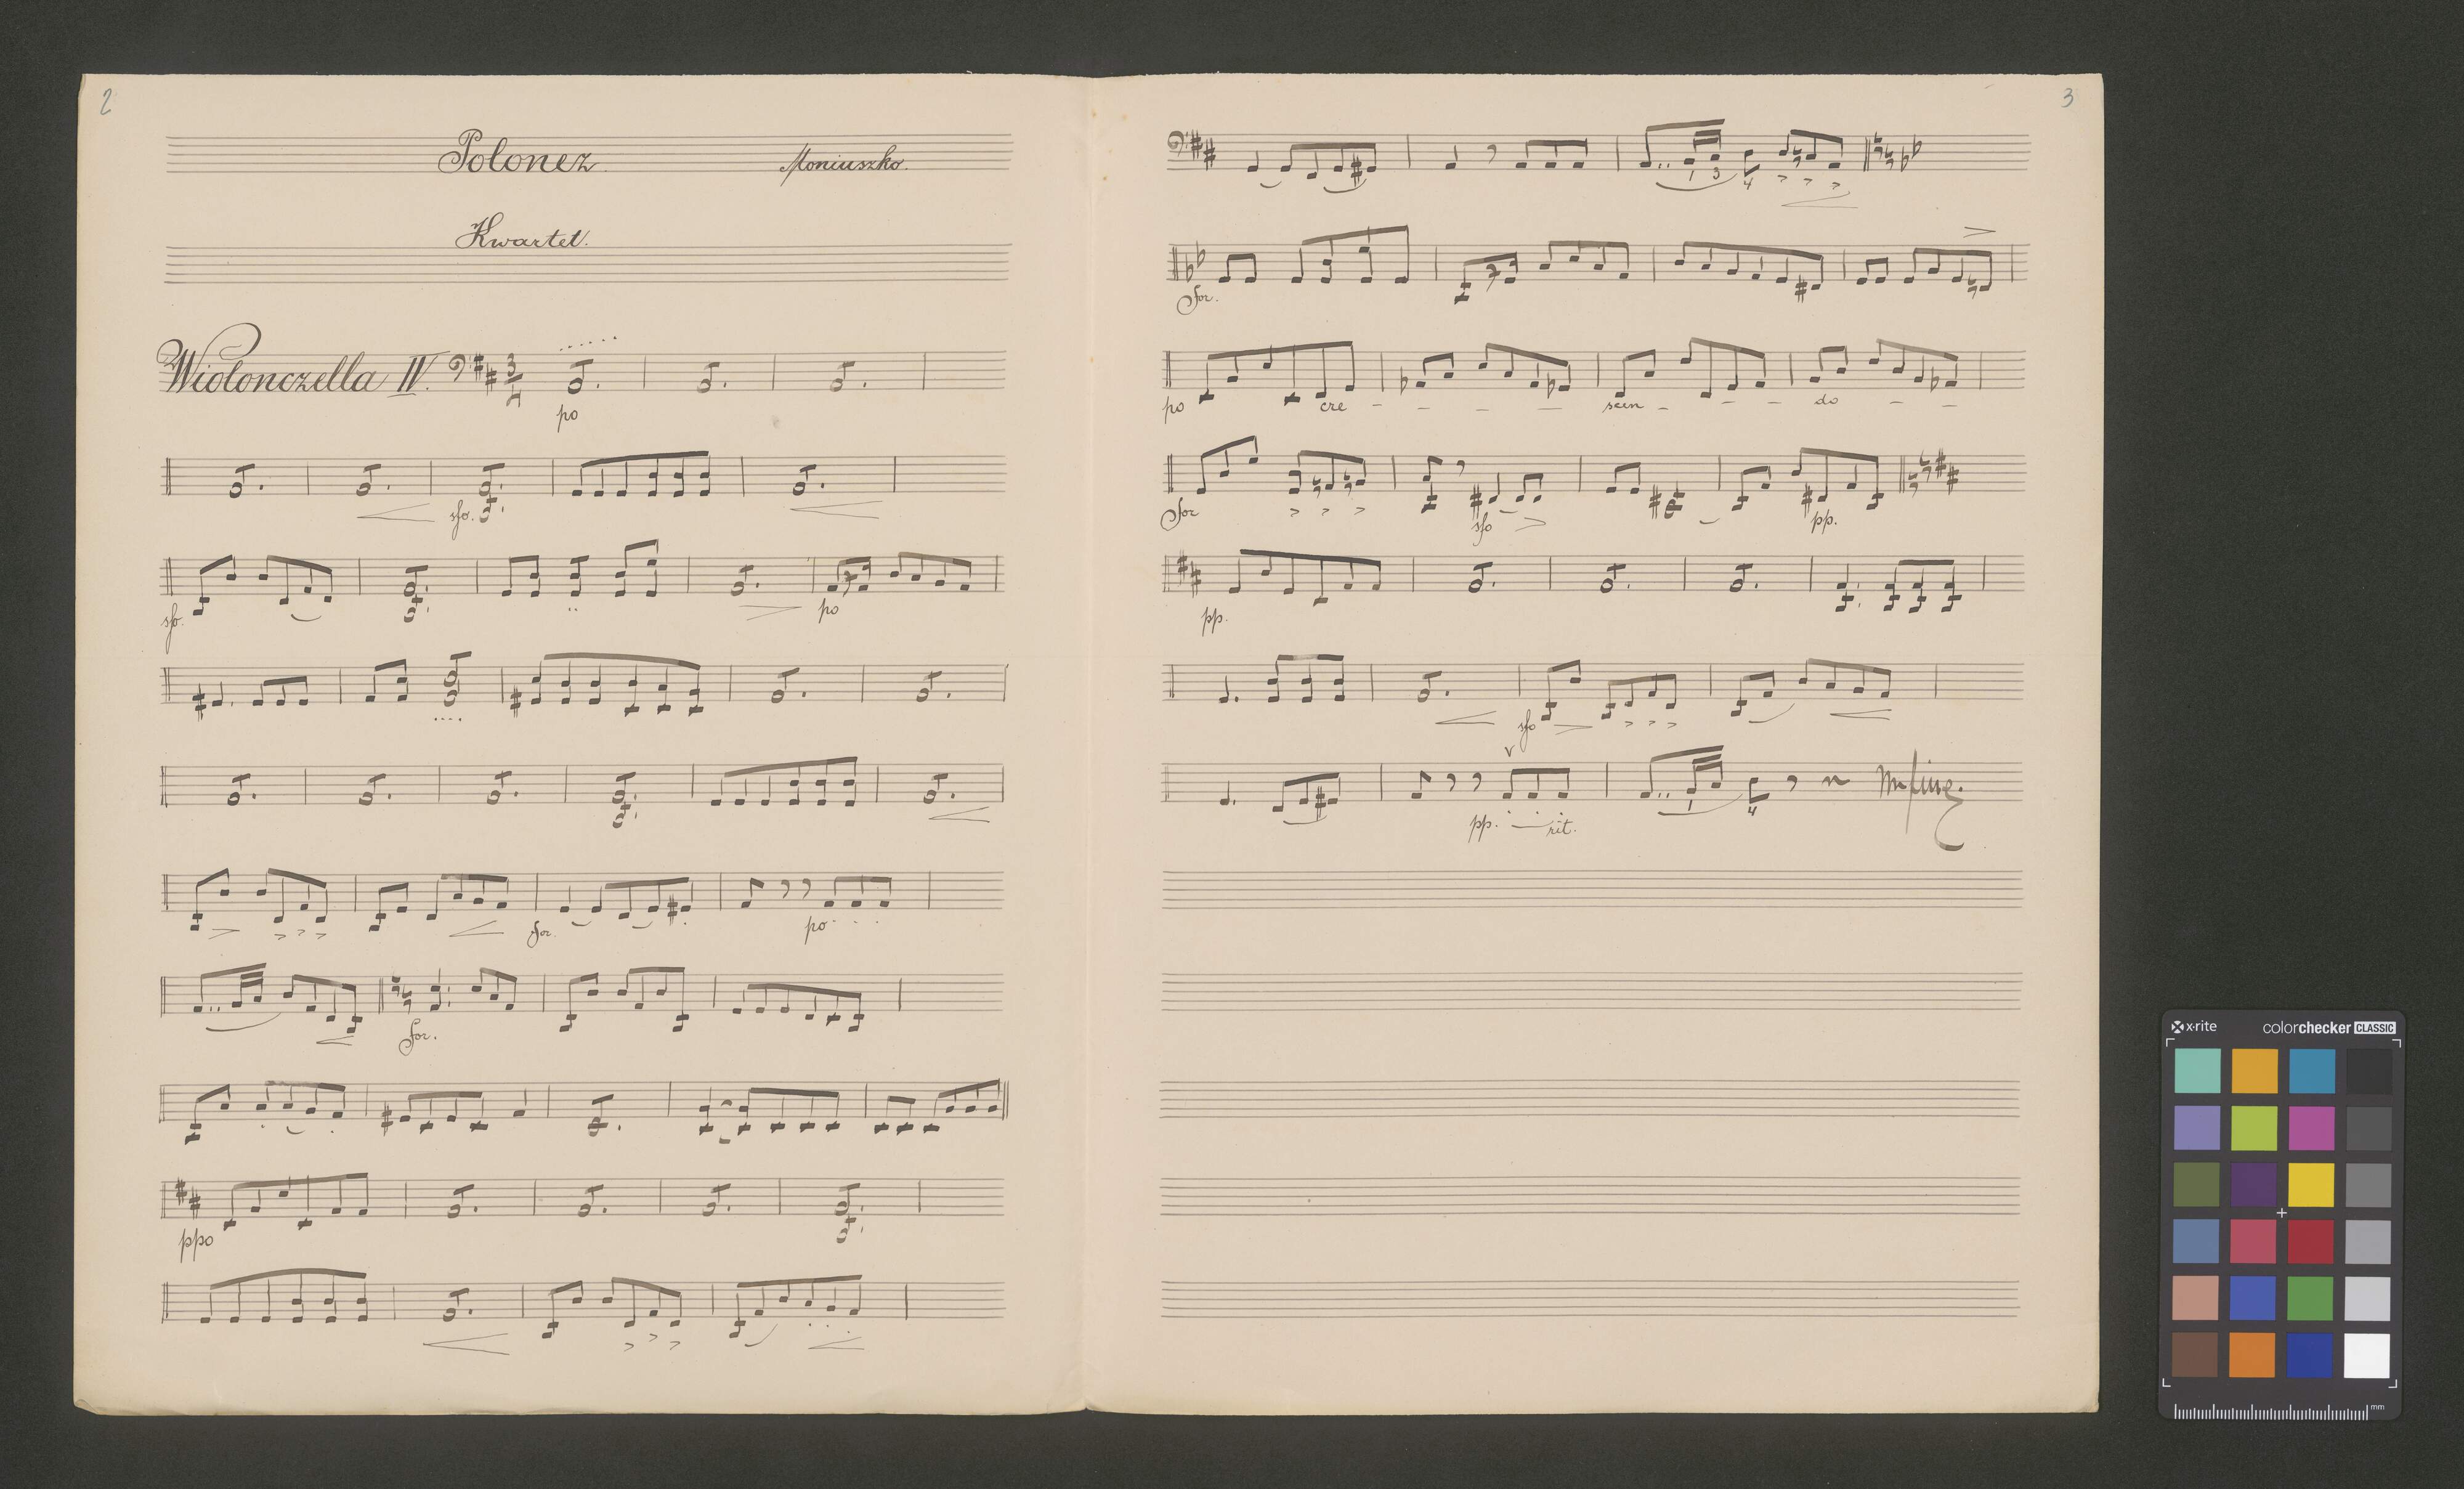 2
Polonez.
Moniuszko.
Kwartet.
Wiolonczella IV.
3
4
po
sfo.
sfo.
po
for.
po
for.
ppo
3
1 3 4
for.
po cre - - - - scen - - - do - -
for
sfo
pp.
pp.
sfo
pp. rit.
1 4
fine.
x-rite
colorchecker CLASSIC
mm